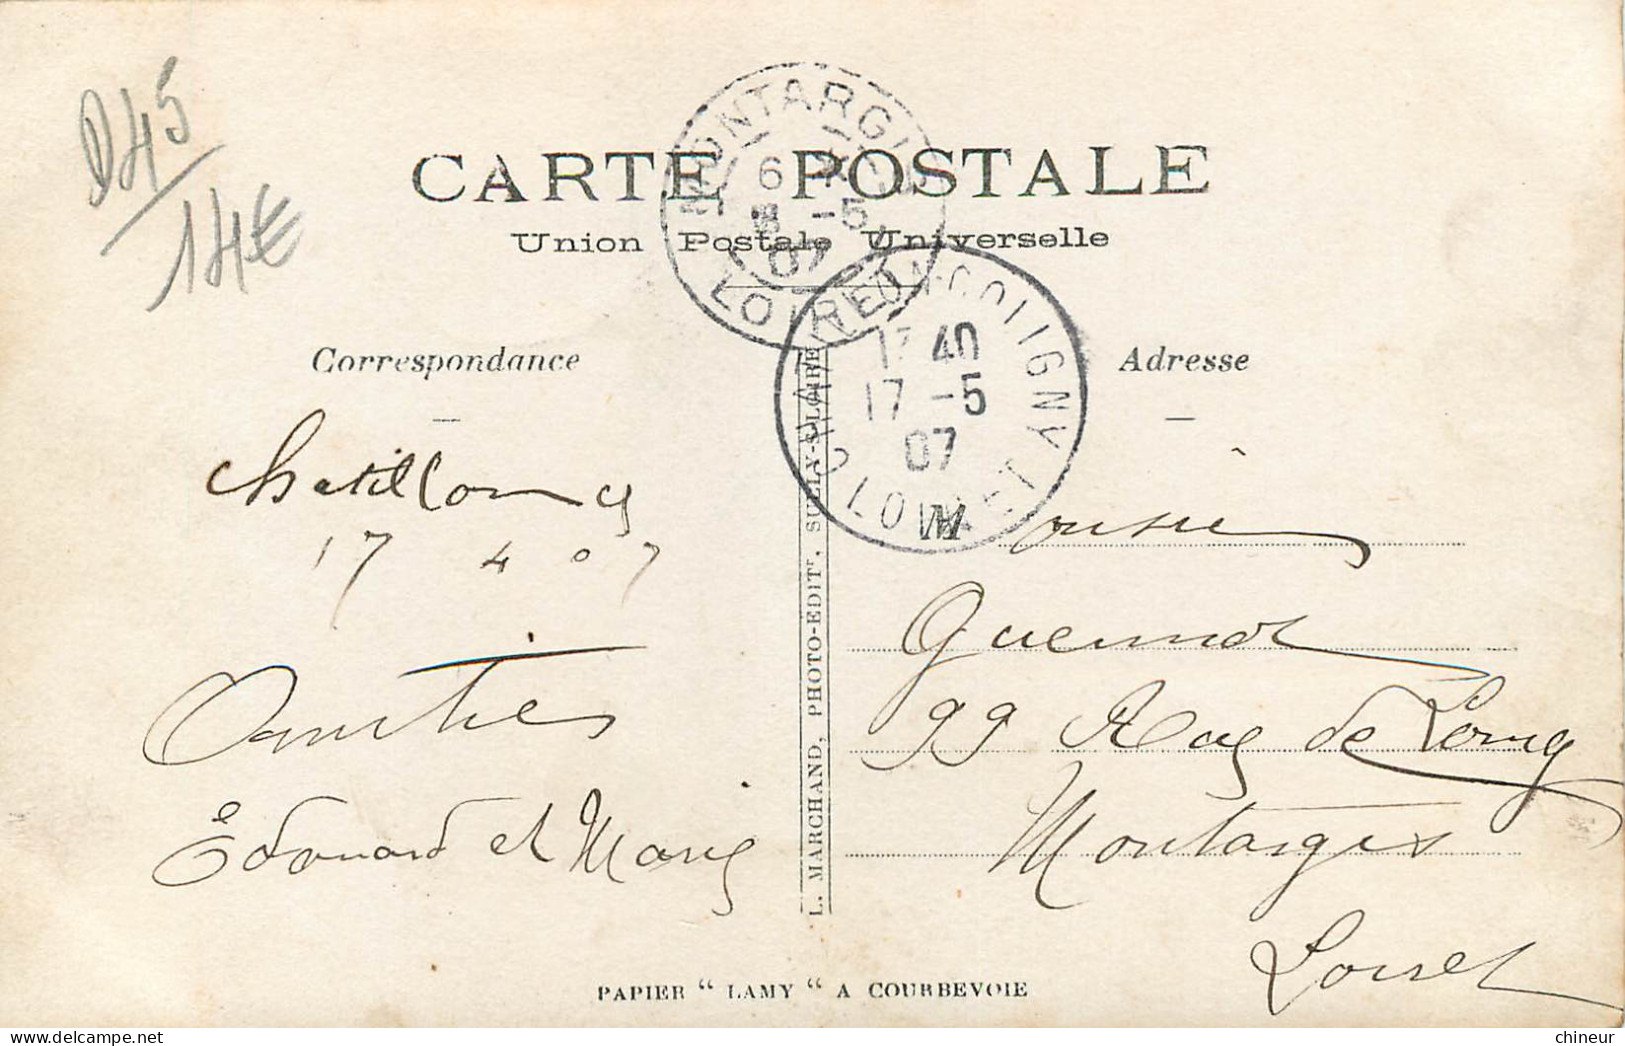 D45
14€
CARTE POSTALE
Union Postale Universelle
MONTARGIS
6
-5
07
LOIRET
CHATILLON-COLIGNY
40
17 -5
07
LOIRET
Correspondance
Adresse
Chatillon cg
17 4 07
Amitiés
Edouard et Marie
L. MARCHAND, PHOTO-EDITr. SULLY-S-LOIRE
Monsieur
99 Rue de Loing
Montargis
Loiret
PAPIER “ LAMY “ A COURBEVOIE
chineur